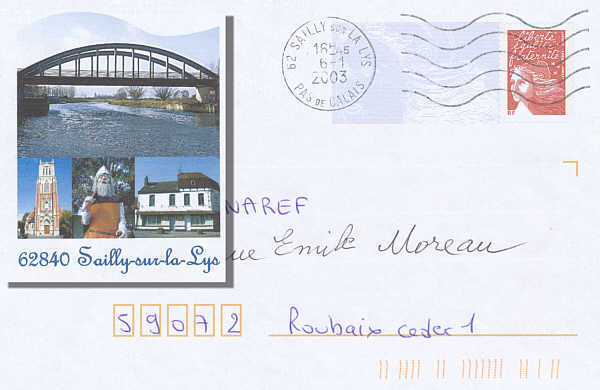 62 SAILLY SUR LA LYS
16H45
6-1
2003
PAS DE CALAIS
Liberté
égalité
fraternité
RF
NAREF
ue Emile Moreau
62840 Sailly-sur-la-Lys
59072 Roubaix cedex 1